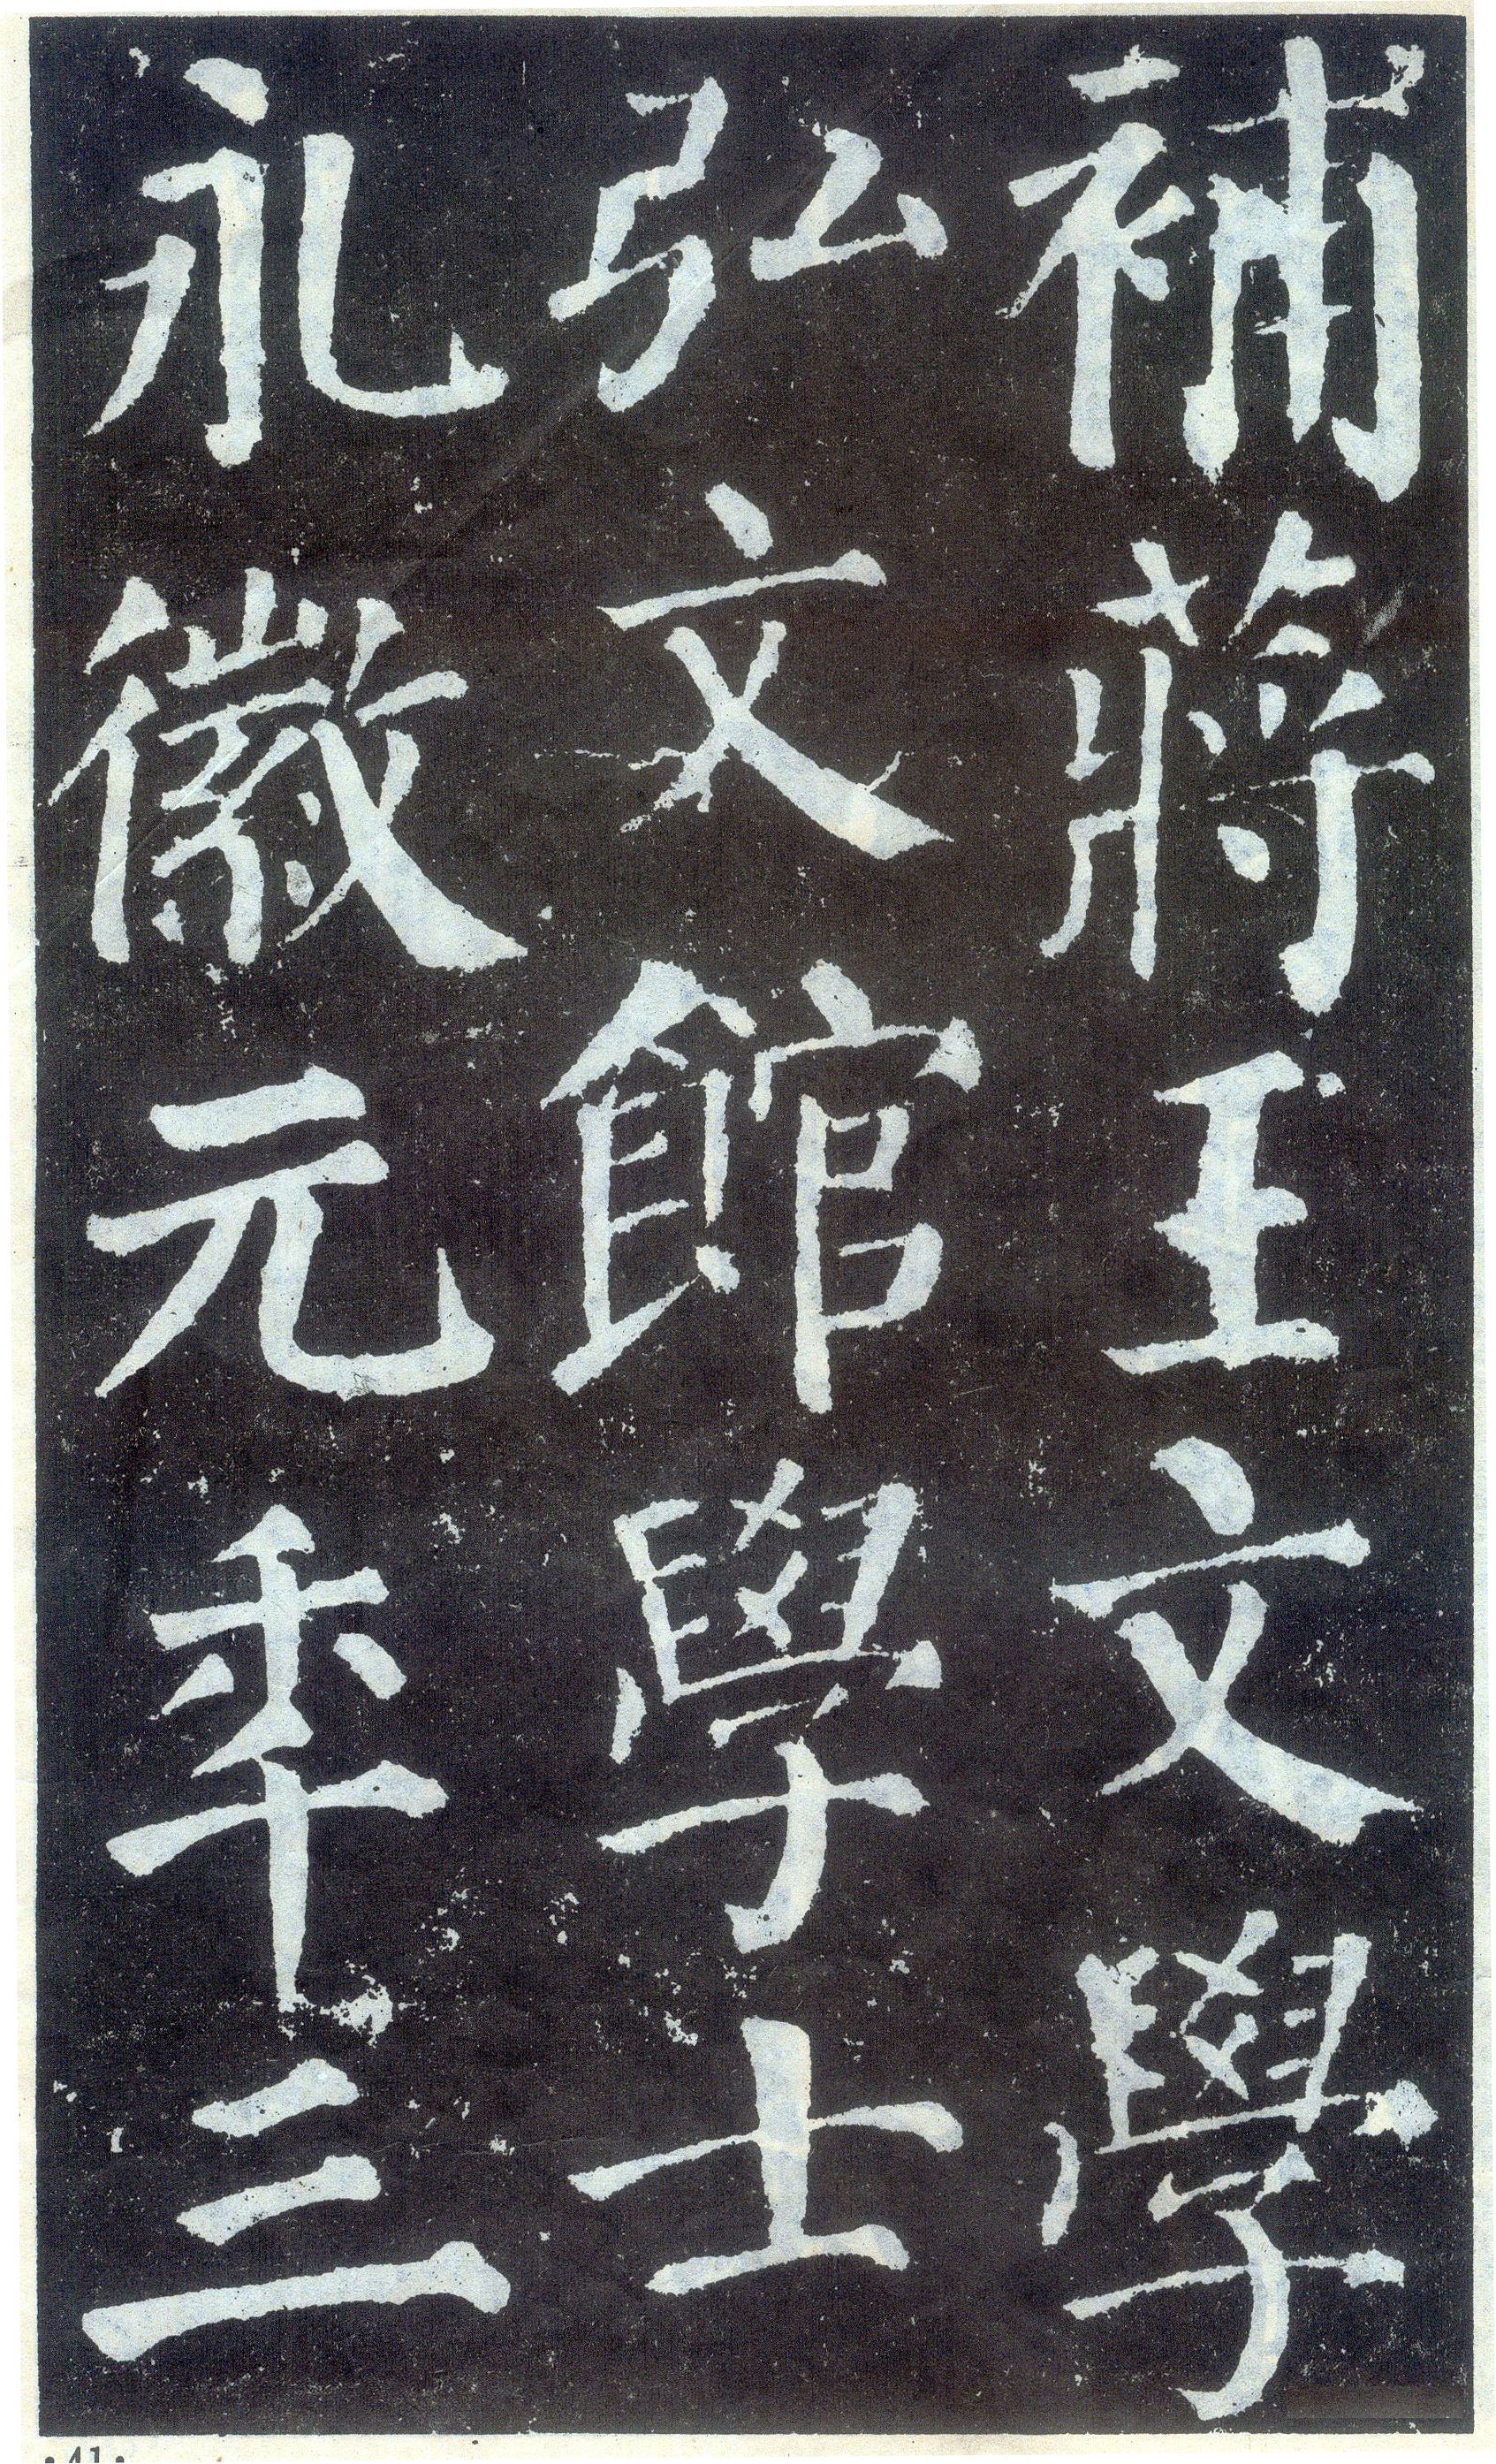 補蔣王文學
弘文館學士
永徽元秊三
•41•